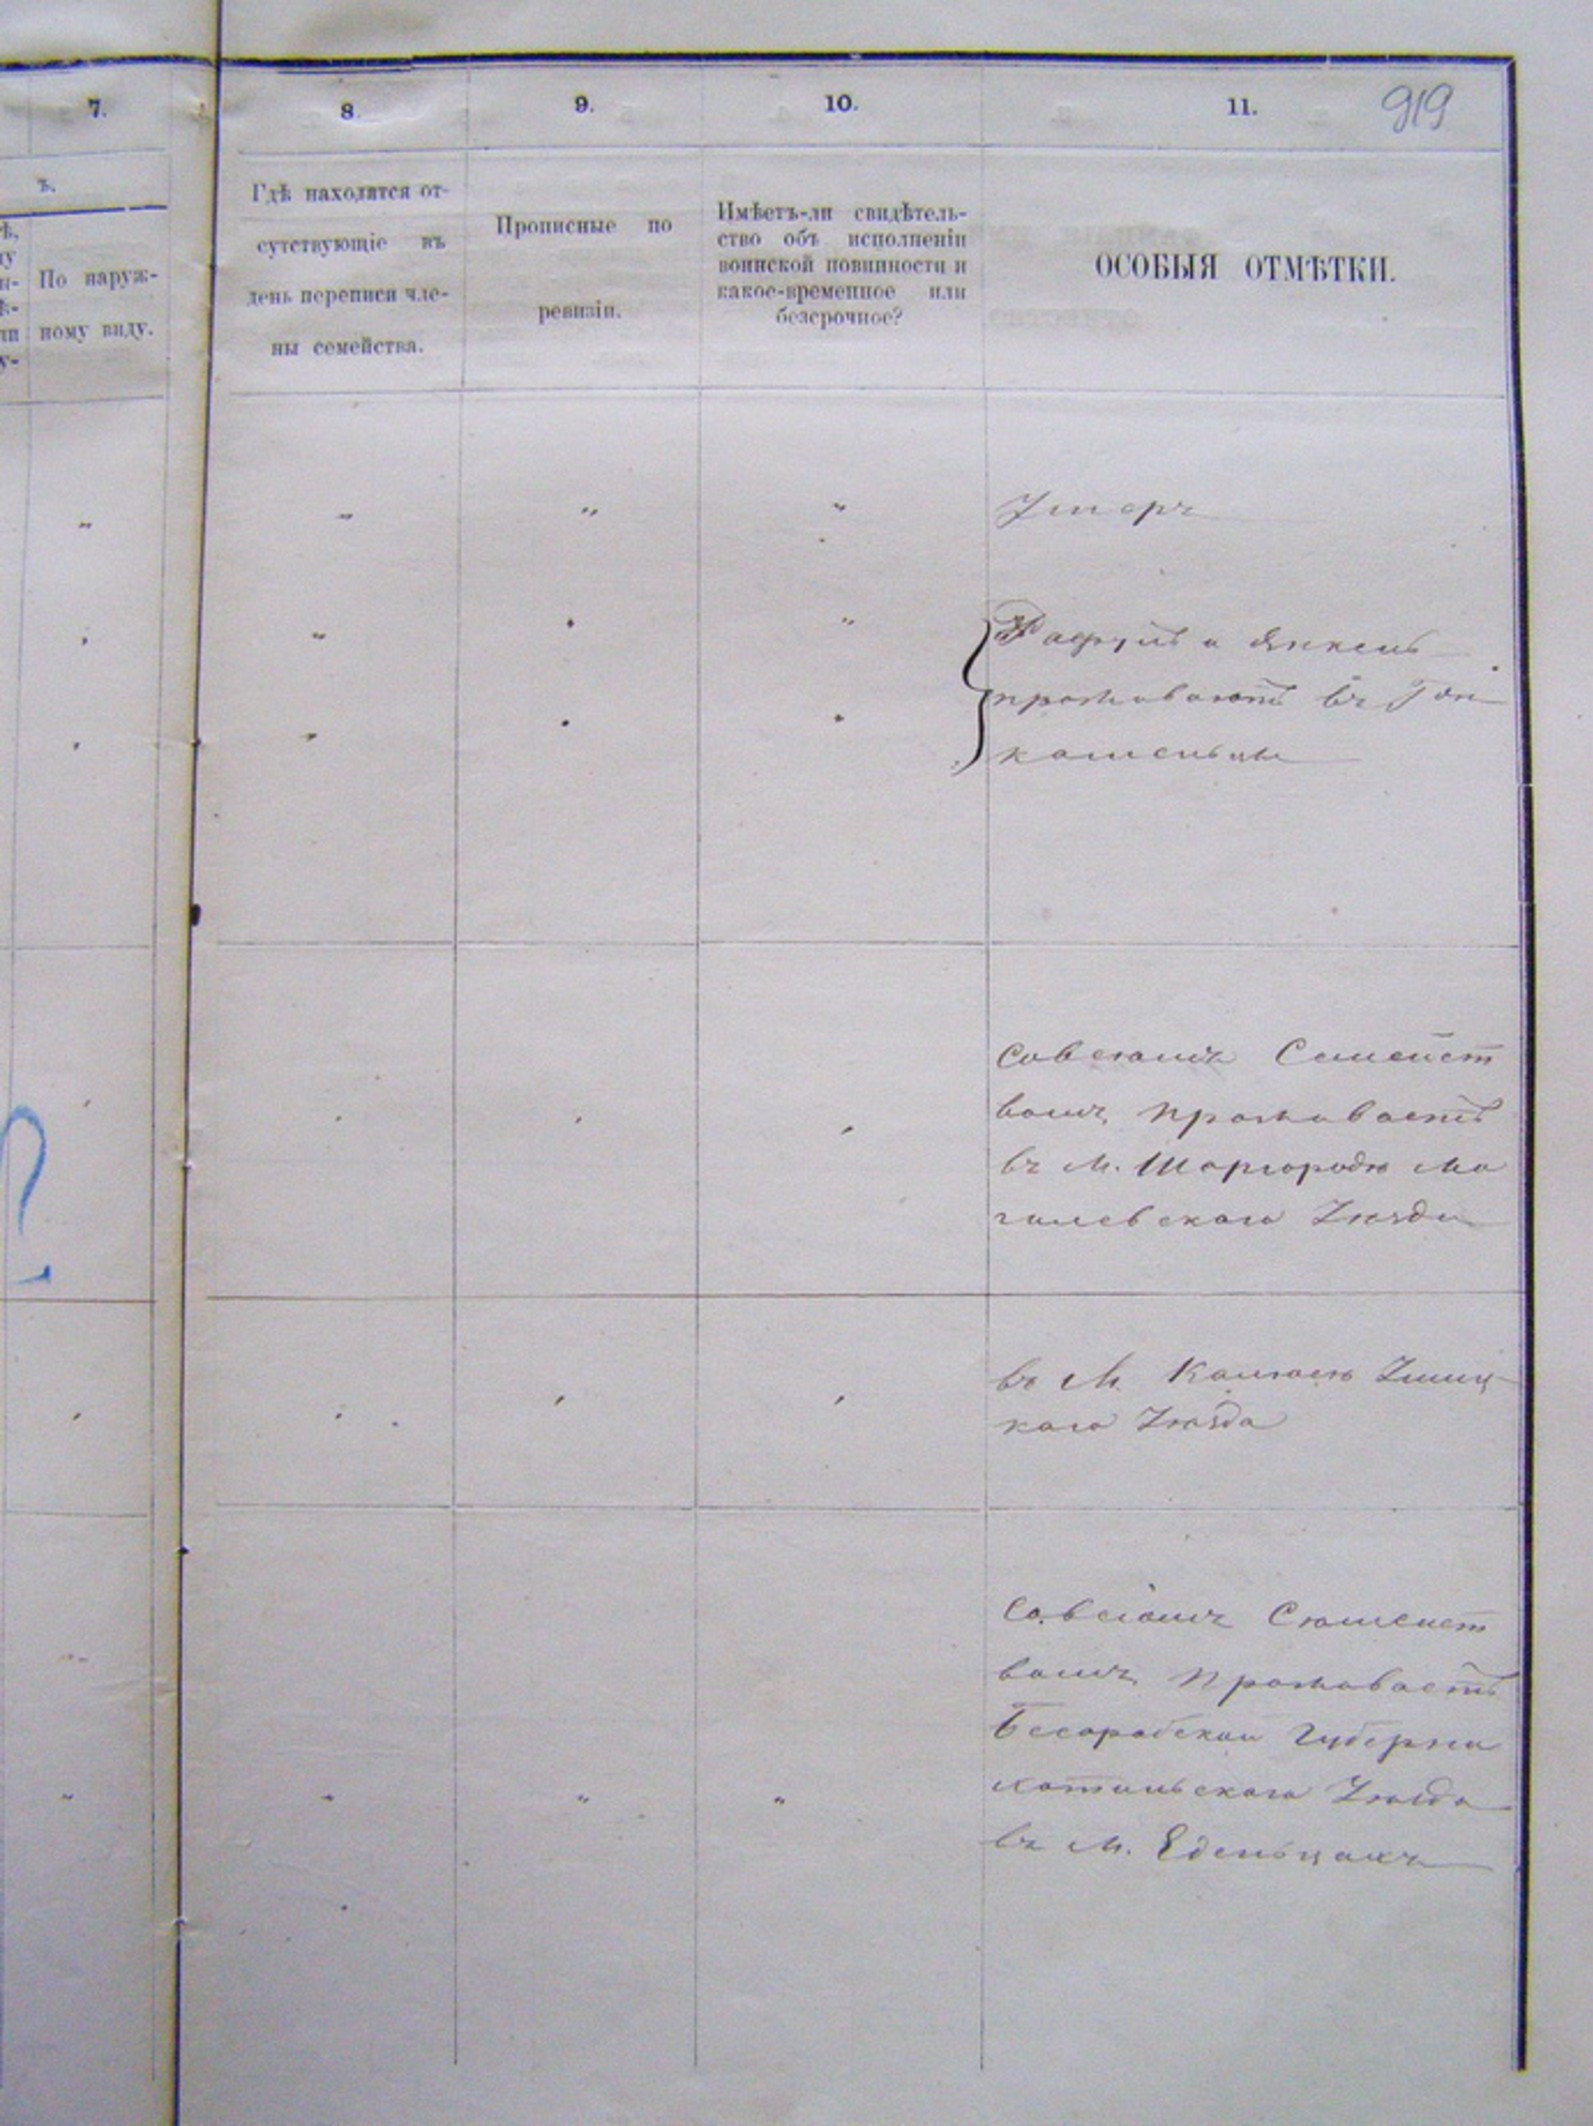 7.
8
9.
10.
11.
919
ъ.
По наруж-
ному виду.
Гдѣ находятся от-
сутствующіе въ
день переписи чле-
ны семейства.
Прописные по
ревизіи.
Имѣетъ-ли свидѣтель-
ство объ исполненіи
воинской повинности и
какое-временное или
безсрочное?
ОСОБЫЯ ОТМѢТКИ.
Умеръ
и Янкель
проживаютъ въ
Совсемъ Семейст
вомъ проживаетъ
въ М. Шаргородѣ Мо
гилевскаго Уѣзда
въ М. Ушиц-
каго Уѣзда
Совсемъ Семейст
вомъ проживаетъ
Бесарабской Губерни
хотинскаго Уѣзда
въ М. Еденьцахъ